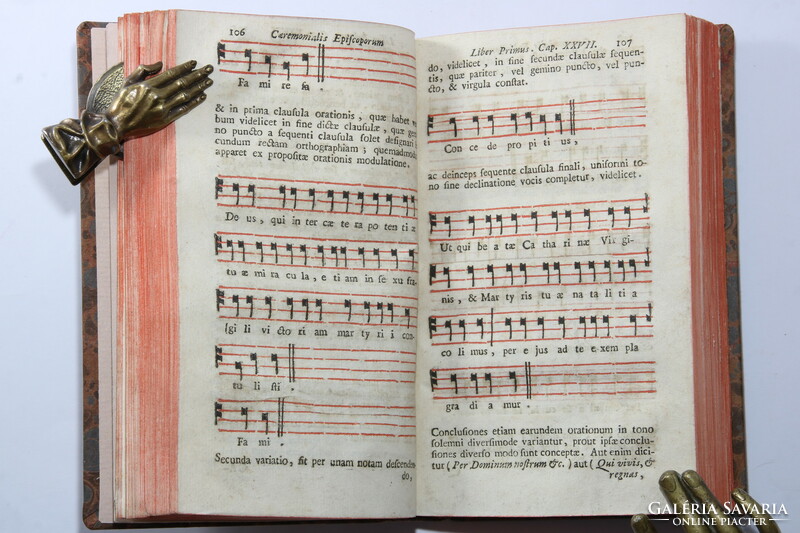 106 Cæremonialis Episcoporum
Fa mi re fa.
& in prima clausula orationis, quæ habet
bum videlicet in fine dictæ clausulæ, quæ
no puncto a sequenti clausula solet designari
cundum rectam orthographiam; quemadmodum
apparet ex propositæ orationis modulatione.
De us, qui in ter cæ te ra po ten ti æ
tu æ mi ra cu la, e ti am in se xu fra-
gi li vi cto ri am mar ty ri i con-
tu li sti.
Fa mi.
Secunda variatio, fit per unam notam descenden-
do,
Liber Primus. Cap. XXVII. 107
do, videlicet, in fine secundæ clausulæ sequen-
tis, quæ pariter, vel gemino puncto, vel pun-
cto, & virgula constat.
Con ce de pro pi ti us,
ac deinceps sequente clausula finali, uniformi to-
no sine declinatione vocis completur, videlicet.
Ut qui be a tæ Ca tha ri næ Vir gi-
nis, & Mar ty ris tu æ na ta li ti a
co li mus, per e jus ad te e-xem pla
gra di a mur.
Conclusiones etiam earundem orationum in tono
solemni diversimode variantur, prout ipsæ conclu-
siones diverso modo sunt conceptæ. Aut enim dici-
tur (Per Dominum nostrum &c.) aut (Qui vivis, &
regnas,
GALÉRIA SAVARIA
ONLINE PIACTÉR